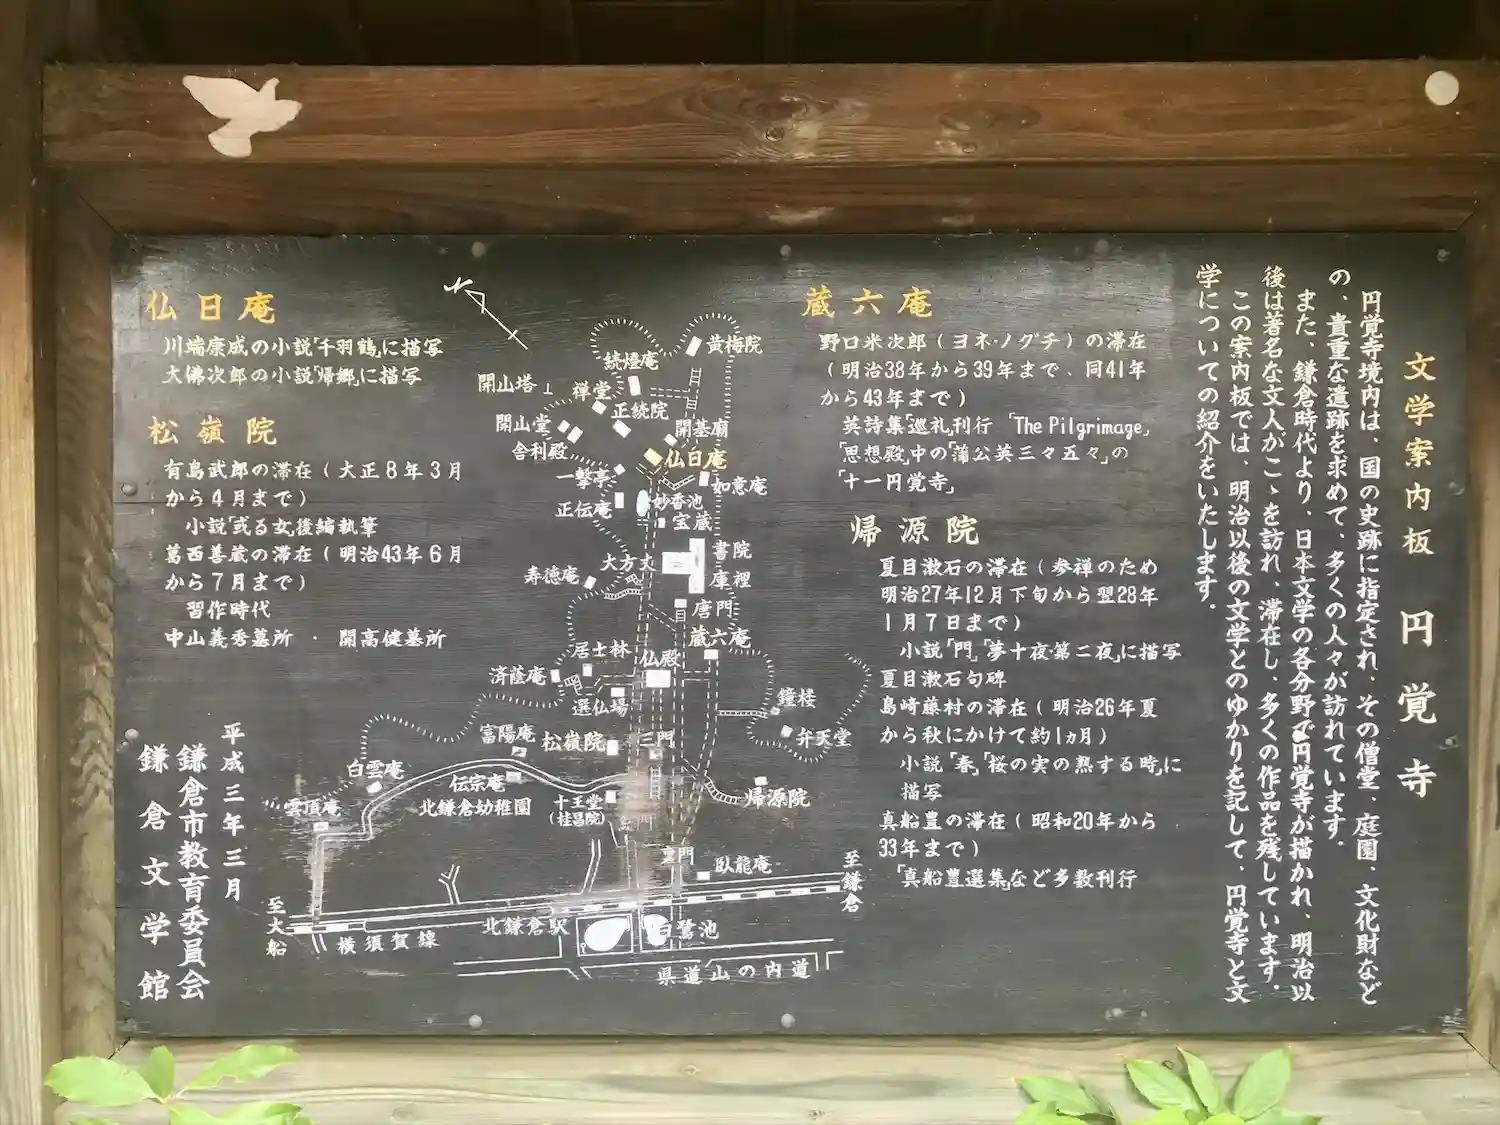 文学案内板 円覚寺
円覚寺境内は、国の史跡に指定され、その僧堂、庭園、文化財など
の、貴重な遺跡を求めて、多くの人々が訪れています。
また、鎌倉時代より、日本文学の各分野で円覚寺が描かれ、明治以
後は著名な文人がこゝを訪れ、滞在し、多くの作品を残しています。
この案内板では、明治以後の文学とのゆかりを記して、円覚寺と文
学についての紹介をいたします。
蔵六庵
野口米次郎(ヨネ・ノグチ)の滞在
(明治38年から39年まで、同41年
から43年まで)
英詩集「巡礼」刊行 「The Pilgrimage」
「思想殿」中の「蒲公英三々五々」の
「十一円覚寺」
帰源院
夏目漱石の滞在(参禅のため
明治27年12月下旬から翌28年
1月7日まで)
小説「門」「夢十夜・第二夜」に描写
夏目漱石句碑
島崎藤村の滞在(明治26年夏
から秋にかけて約1ヵ月)
小説「春」「桜の実の熟する時」に
描写
真船豊の滞在(昭和20年から
33年まで)
「真船豊選集」など多数刊行
仏日庵
川端康成の小説「千羽鶴」に描写
大佛次郎の小説「帰郷」に描写
松嶺院
有島武郎の滞在(大正8年3月
から4月まで)
小説「或る女」後編執筆
葛西善蔵の滞在(明治43年6月
から7月まで)
習作時代
中山義秀墓所 ・ 開高健墓所
黄梅院
続燈庵
開山塔
禅堂
正続院
開山堂
開基廟
舎利殿
仏日庵
一撃亭
如意庵
正伝庵
妙香池
宝蔵
大方丈
書院
寿徳庵
庫裡
唐門
蔵六庵
居士林
仏殿
済蔭庵
選仏場
鐘楼
富陽庵
松嶺院
三門
弁天堂
白雲庵
伝宗庵
雲頂庵
北鎌倉幼稚園
十王堂
(桂昌院)
帰源院
臥龍庵
至鎌倉
至大船
横須賀線
北鎌倉駅
白鷺池
県道山の内道
平成三年三月
鎌倉市教育委員会
鎌倉文学館